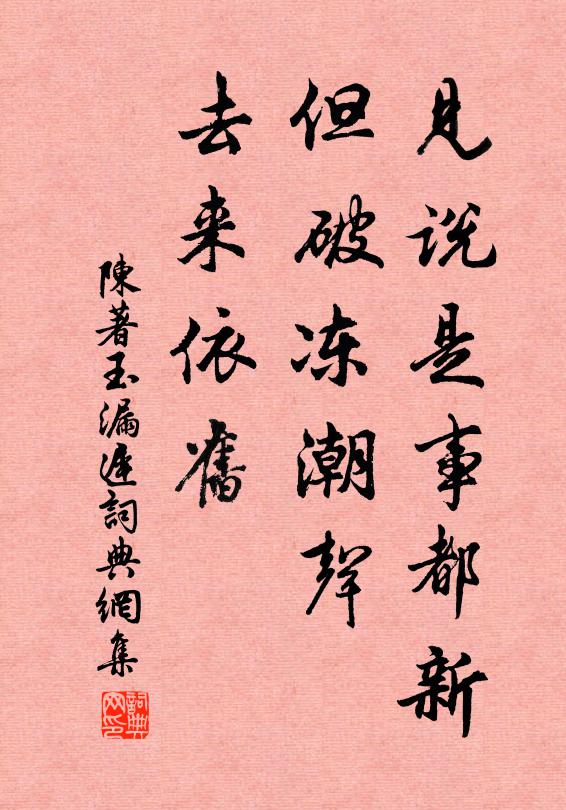 見説是事都新
但破冻潮聲
去来依舊
陳著玉漏遲詞典網集
詞典网印